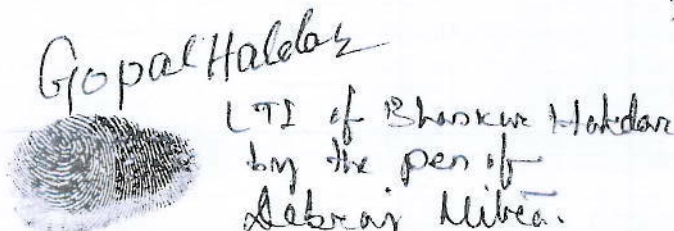 Gopal Haldar
LTI of Bhaskar Haldar
by the pen of
Debraj Mitra.